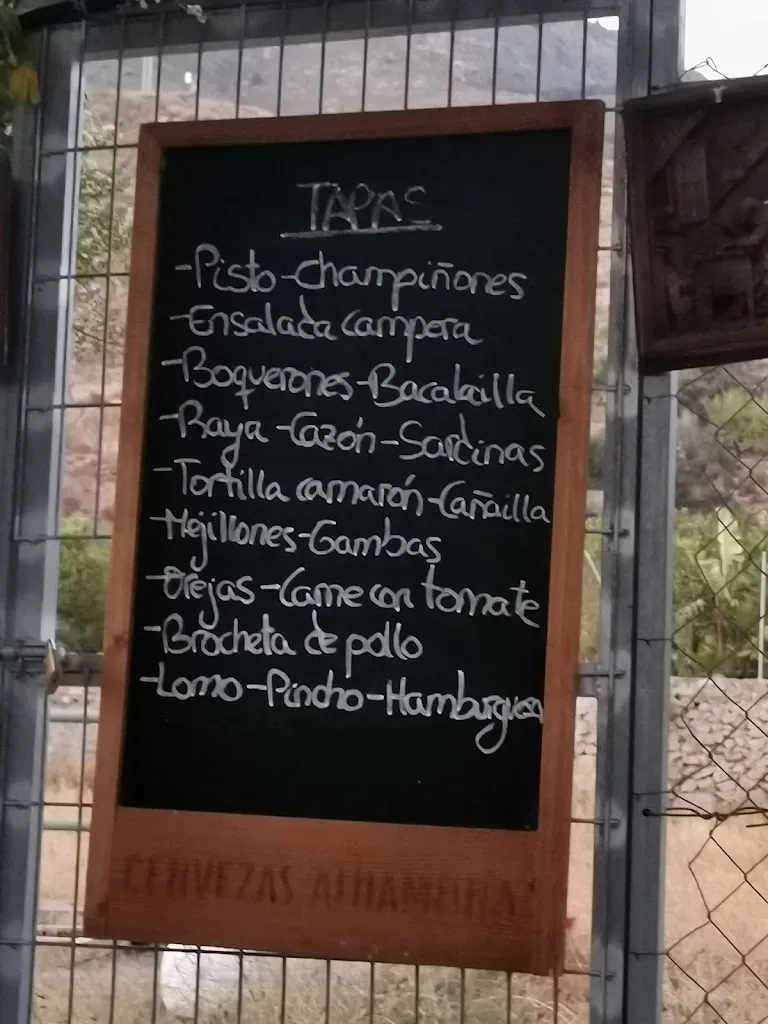 TAPAS
-Pisto-Champiñones
-Ensalada campera
-Boquerones-Bacalailla
-Raya-Cazón-Sardinas
-Tortilla camarón-Cañailla
-Mejillones-Gambas
-Orejas-Carne con tomate
-Brocheta de pollo
-Lomo-Pincho-Hamburguesa
CERVEZAS ALHAMBRA